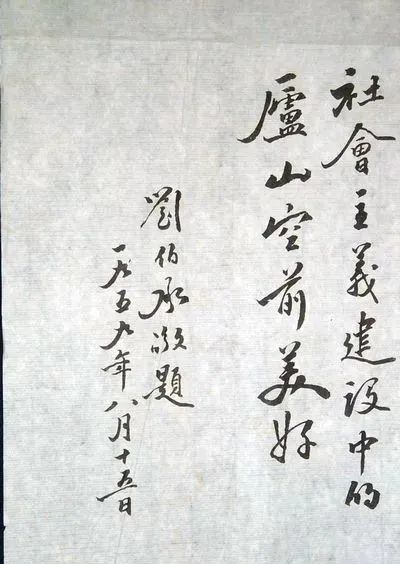 社會主義建设中的
廬山空前美好
劉伯承敬題
一九五九年八月十五日